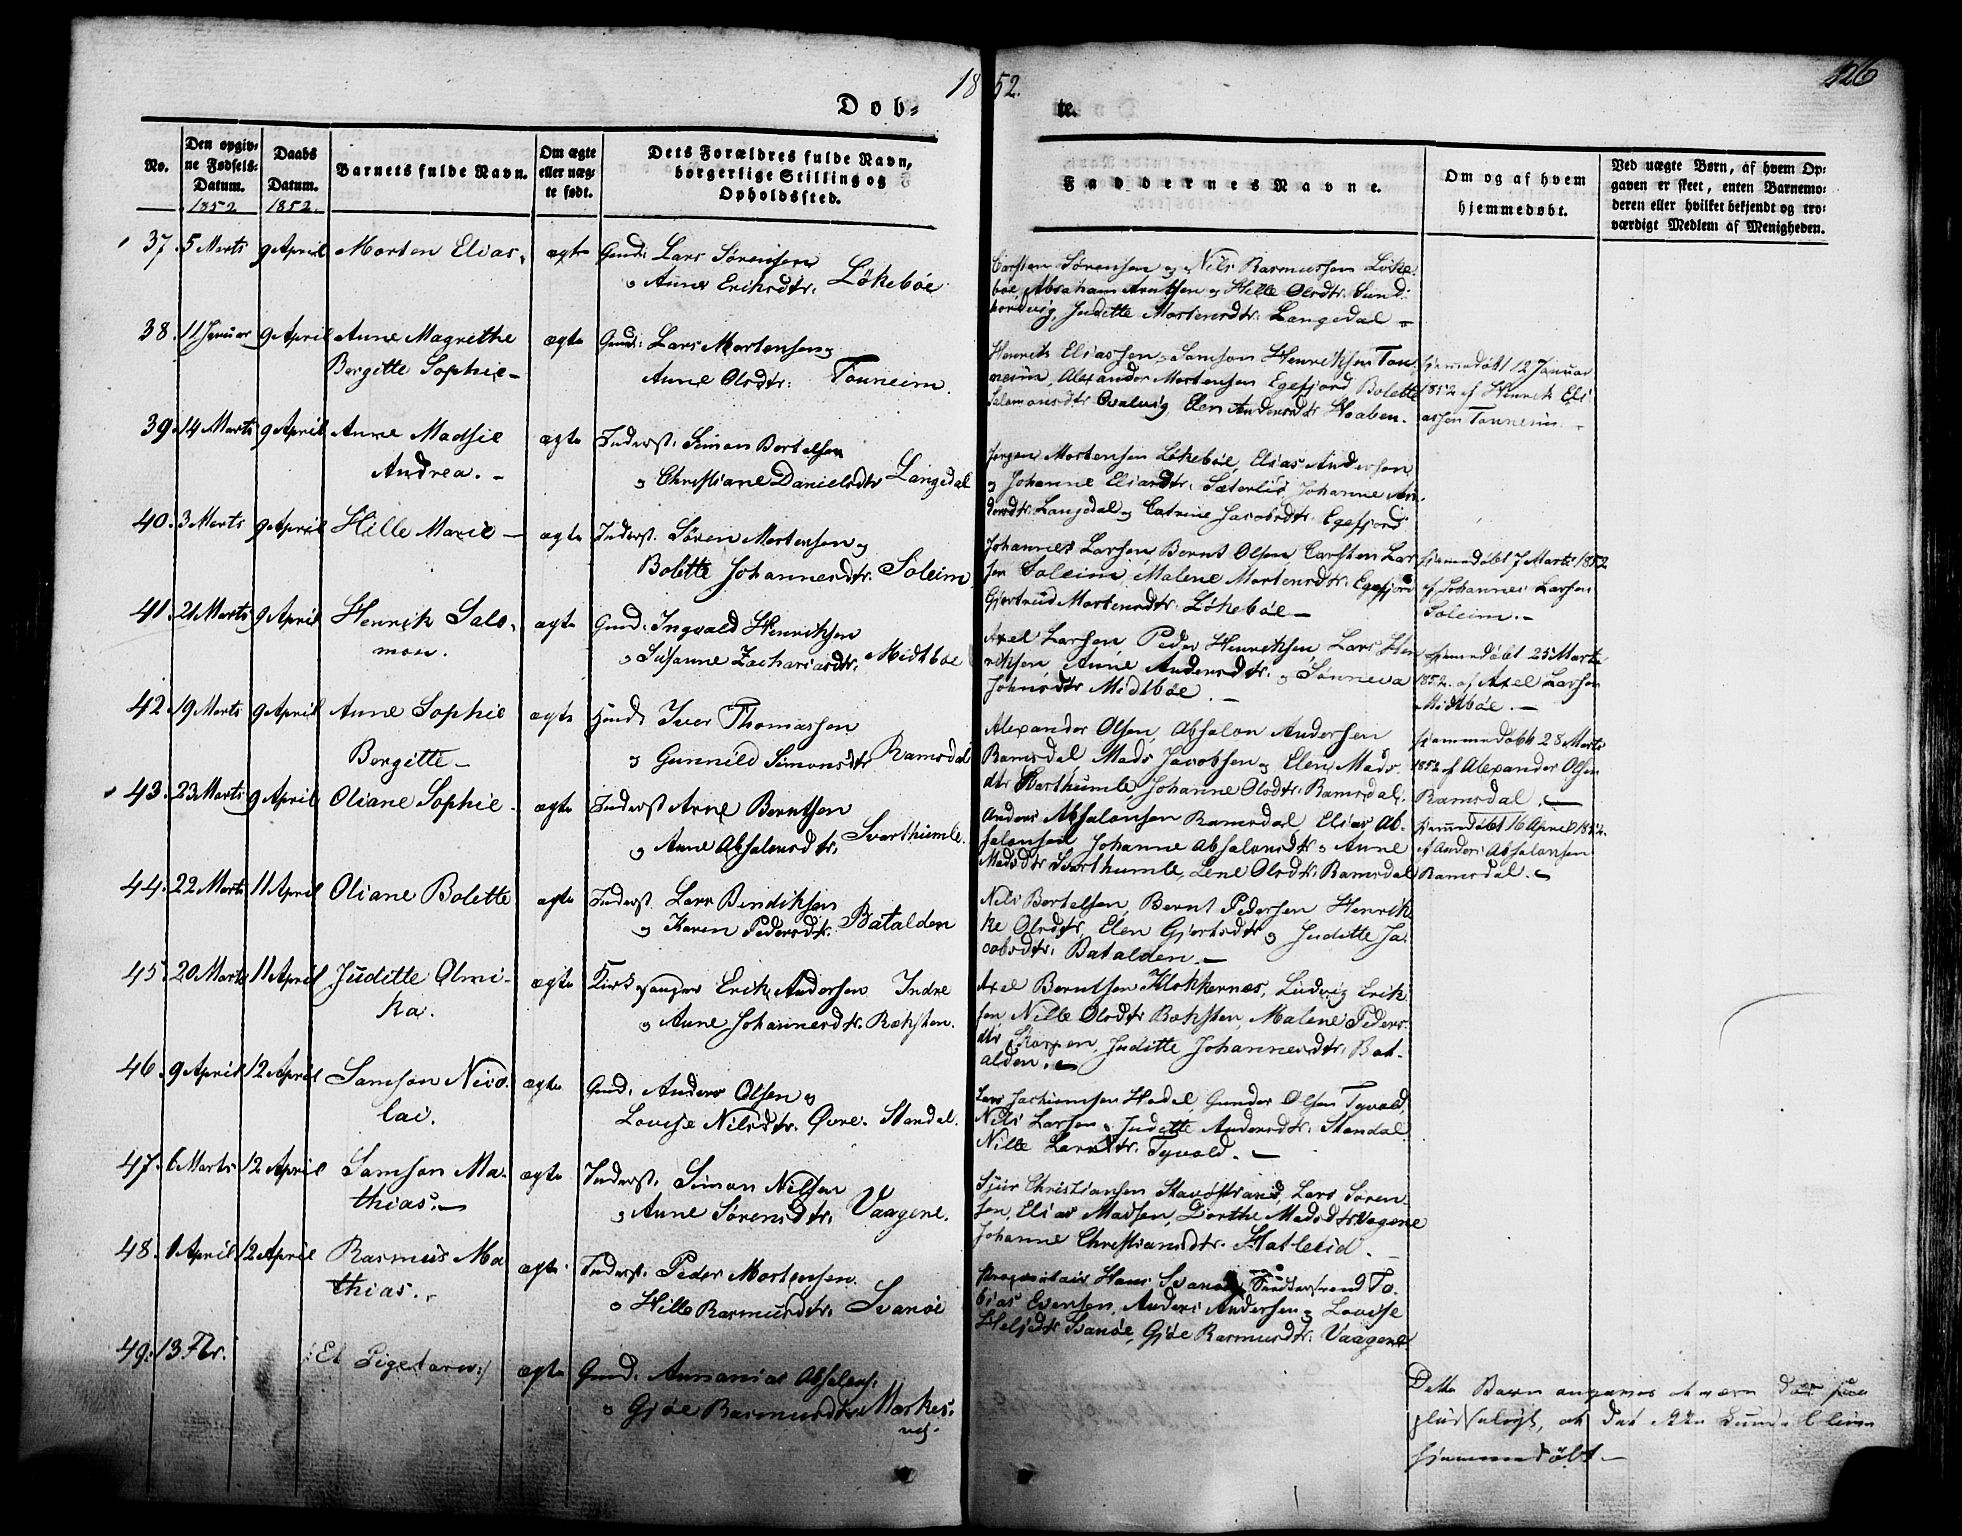 1852.
126
Dob-
te.
No.
Den opgiv-
ne Fødsels-
Datum.
1852
Daabs
Datum.
1852.
Barnets fulde Navn.
Om ægte
eller uæg-
te født.
Dets Forældres fulde Navn,
borgerlige Stilling og
Opholdssted.
Faddernes Navne.
Om og af hvem
hjemmedøbt.
Ved uægte Børn, af hvem Op-
gaven er skeet, enten Barnemo-
deren eller hvilket bekjendt og tro-
værdigt Medlem af Menigheden.
37. 5 Marts 9 April Morten Elias. ægte Gmd: Lars Sørensen
o Anne Eriksdtr. Løkebøe
Carsten Sørensen og Nils Rasmussen Løke-
bøe Abraham Arentsen o Hille Olsdtr. Sund-
Juditte Mortensdtr. Langedal -
38. 11 Januar 9 April Anne Magrethe ægte Gmd: Lars Mortensen o
Bergitte Sophie - Anne Olsdtr: Tonneim.
Henrik Eliassen, Samson Henriksen Ton-
neim, Alexander Mortensen Egefjord Bolette
Salamonsdtr Qvalvig Elen Andersdtr Hoaben.
Hjemmedøbt 12 Januar
1852 af Henrik Eli-
assen Tonneim -
39. 14 Marts 9 April Anne Madsie ægte Inderst. Simon Bertelsen
Andrea. - o Christiane Danielsdtr Langedal
Jørgen Mortensen Løkebøe, Elias Andersen
o Johanne Eliasdtr. Sæterlid Johanne An-
dersdtr. Langedal o Catrine Jacobsdtr. Egefjord
40. 3 Marts 9 April Hille Marie - ægte Inderst. Søren Mortensen o
Bolette Johannesdtr. Soleim
Johannes Larsen, Bernt Olsen, Carsten Lar-
sen Soleim, Malene Mortensdtr. Egefjord
Gjertrud Mortensdtr. Løkebøe -
Hjemmedøbt 7 Marts 1852
af Johannes Larsen
Soleim. -
41. 21 Marts 9 April Henrik Salo- ægte Gmd: Ingvald Henriksen
mon. o Susanne Zachariasdtr. Midtbøe
Axel Larsen Peder Henriksen Lars Hen-
riksen Anne Andersdtr. o Sønneva
Johnsdtr Midtbøe. -
Hjemmedøbt 25 Marts
1852. af Axel Larsen
Midtbøe. -
42. 19 Marts 9 April Anne Sophie ægte Iver Thomassen
Bergitte - o Gunnild Simonsdtr Ramsdal
Alexander Olsen, Absalon Andersen
Ramsdal Mads Jacobsen o Elen Mads-
dtr Svarthumle, Johanne Olsdtr. Ramsdal.
Hjemmedøbt 28 Marts
1852 af Alexander Olsen
Ramsdal. -
43. 23 Marts 9 April Oliane Sophie. ægte Inderst Arne Berntsen
o Anne Absalonsdtr. Svarthumle.
Anders Absalonsen Ramsdal, Elias Ab-
salonsen Johanne Absalonsdtr o Anne
Madsdtr Svarthumle, Lene Olsdtr. Ramsdal
Hjemmedøbt 16 April 1852.
af Anders Absalonsen
Ramsdal. -
44. 22 Marts 11 April Oliane Bolette ægte Inderst. Lars Bendiksen
o Karen Pedersdtr. Batalden
Nils Bertelsen, Bernt Pedersen Henrik-
ke Olsdtr, Elen Gjertsdtr o Juditte Ja-
cobsdtr. Batalden. -
45. 20 Marts 11 April Juditte Olmi- ægte Kirkesanger Erik Andersen Indre
ka. o Anne Johannesdtr. Ræksten.
Axel Berntsen Klokkernæs, Ludvig Erik-
sen Nille Olsdtr Ræksten, Malene Peders-
dtr Skorpen, Juditte Johannesdtr. Bat-
alden. -
46. 9 April 12 April Samson Nico- ægte Gmd: Anders Olsen o
lai. Lovise Nilsdtr. Øvre. Standal.
Lars Joachimsen Hødal, Gunder Olsen Tyvold,
Nils Larsen o Juditte Andersdtr. Standal
Nille Larsdtr. Tyvold. -
47. 6 Marts 12 April Samson Ma- ægte Inderst. Simon Nilsen
thias. - o Anne Sørensdtr. Vaagene.
Sjur Christiansen Stavøstrand, Lars Søren-
sen, Elias Madsen, Dorthe Madsdtr Vagene
Johanne Christiansdtr. Hatleid. -
48. 1 April 12 April Rasmus Ma- ægte Inderst. Peder Mortensen
thias. - o Hille Rasmusdtr. Svanøe
Proprietair Hans Svanøe, To-
bias Evensen, Anders Andersen o Lovise
Heljedtr Svanøe, Gjøe Rasmusdtr. Vaagene
49. 13 Fbr. (:Et Pigebarn:) ægte Gmd. Annanias Absalons:
o Gjøe Rasmusdtr Markes-
vej.
Dette Barn angaves at være død
pludseligt, at det ikke kunde blive
hjemmedøbt -